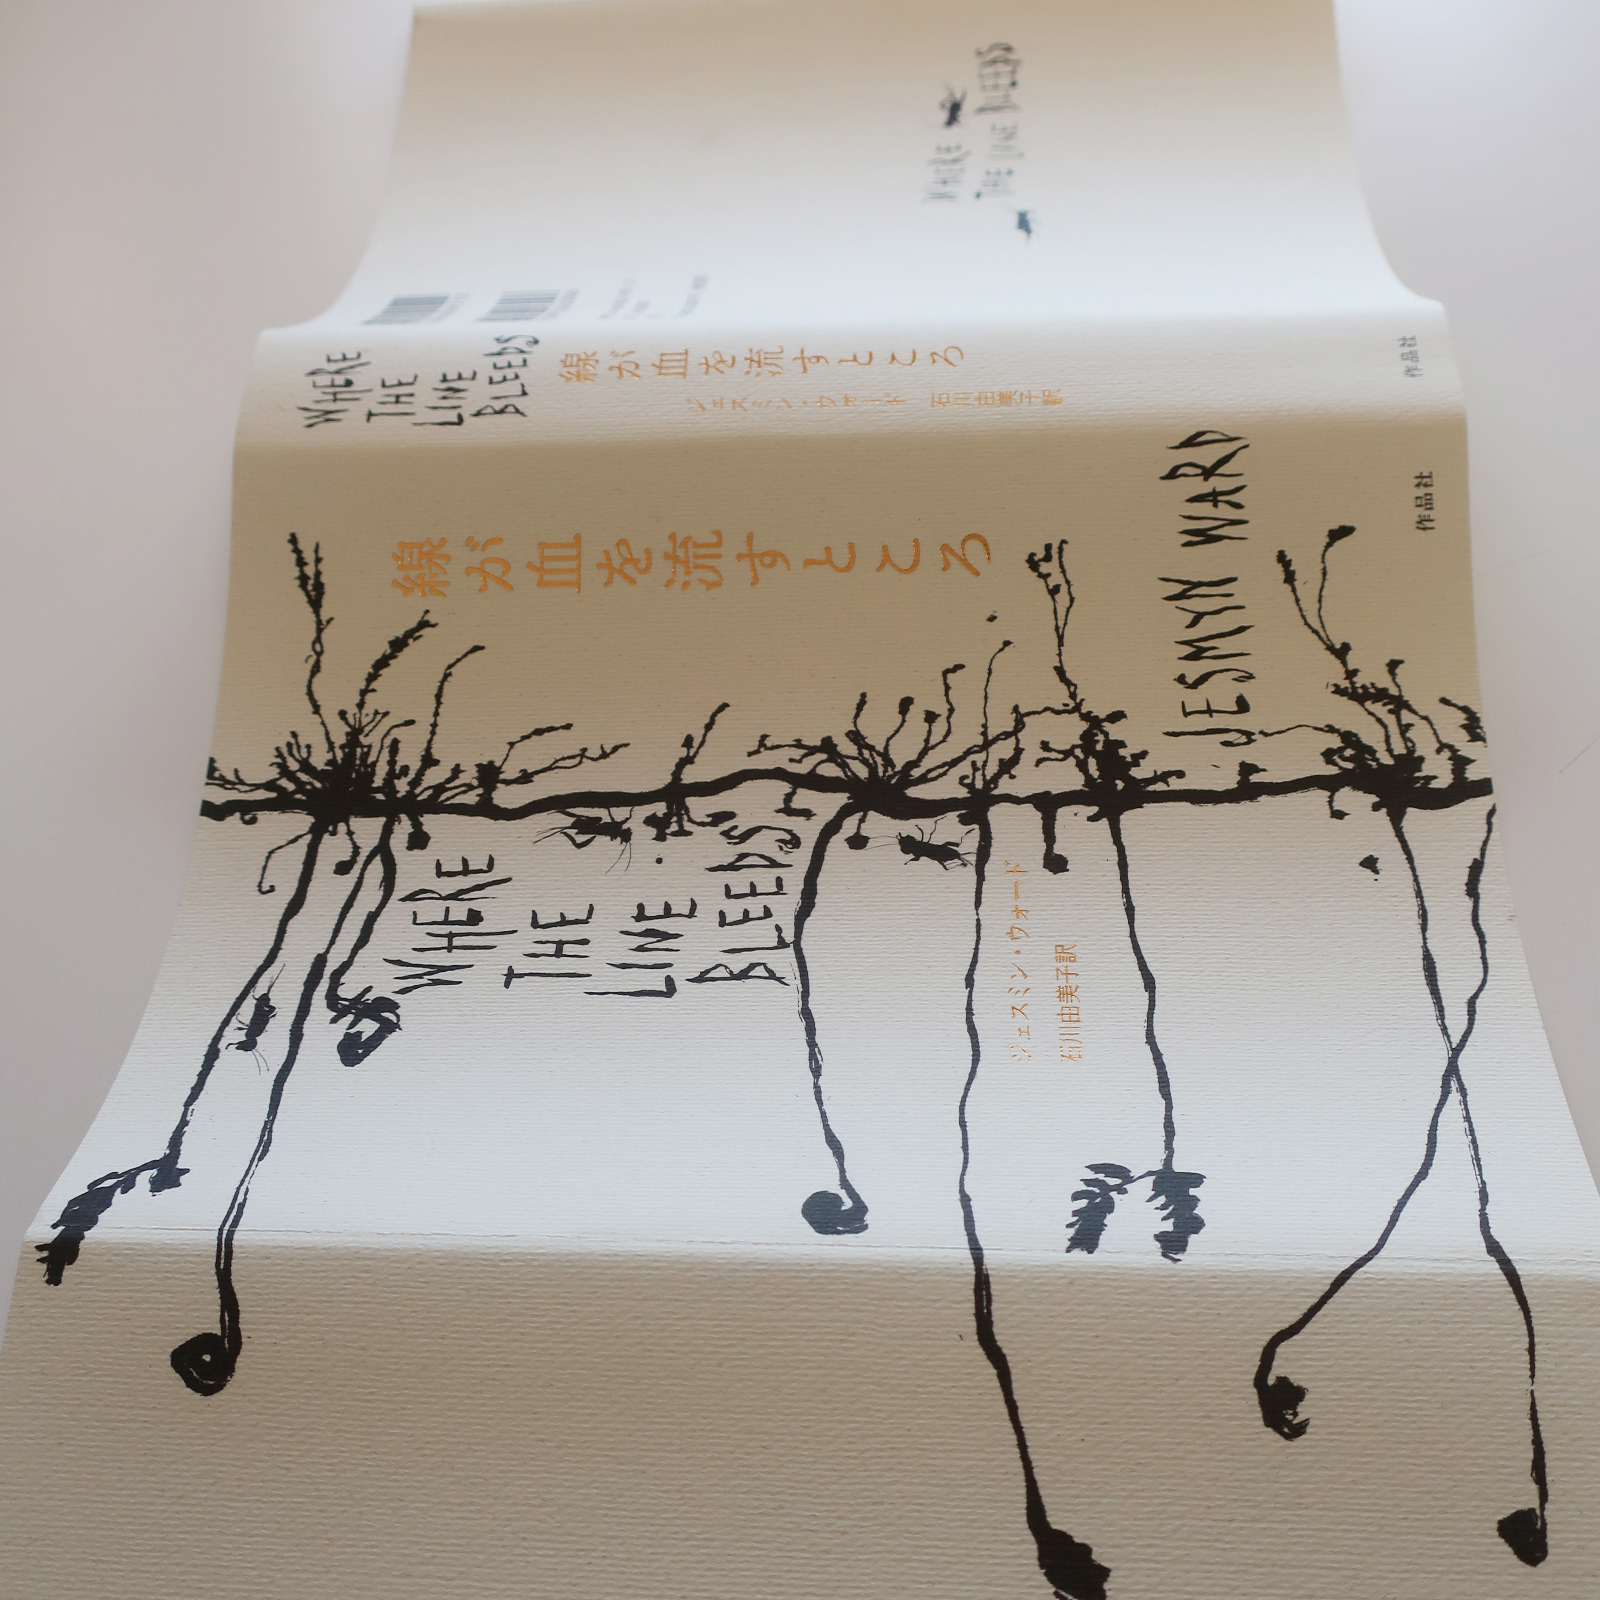 WHERE
THE LINE BLEEDS
WHERE
THE
LINE
BLEEDS
線が血を流すところ
ジェスミン・ウォード 石川由美子訳
作品社
線が血を流すところ
JESMYN WARD
作品社
WHERE
THE
LINE
BLEEDS
ジェスミン・ウォード
石川由美子訳